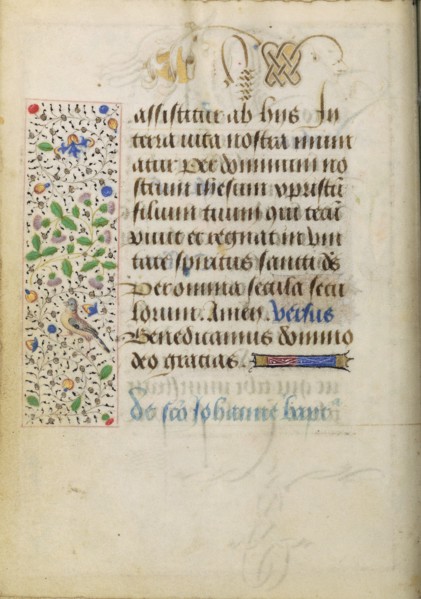 assistitur ab hys In
terra vita nostra muni
atur Per dominum no
strum ihesum xpristū
filium tuum qui tecū
vivit et regnat in vni
tate spiritus sancti d̄s
Per omnia secula secu
lorum. Amen. versus
Benedicamus domino
deo gracias.
de sc̄o Johanne bapt